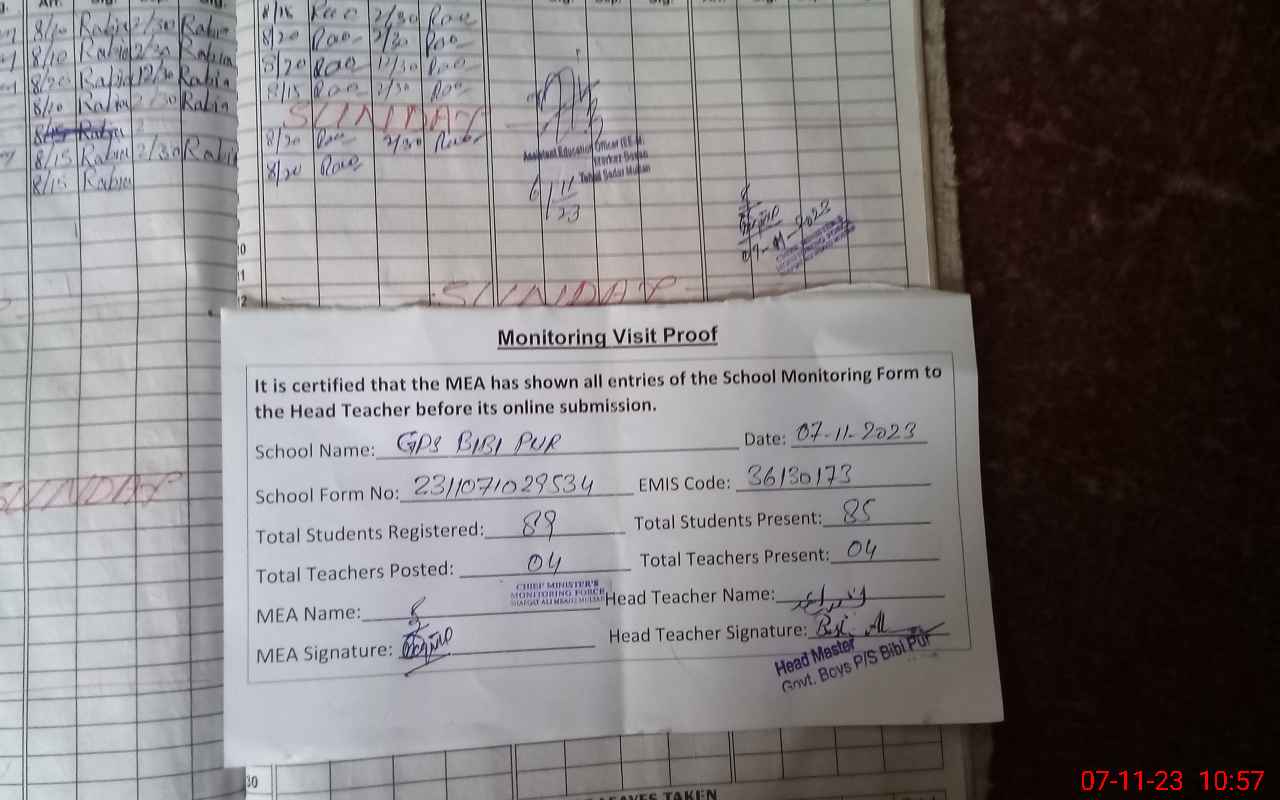 8/10 Rabia 2/30 Rabia
8/10 Rabia 2/30 Rabia
8/20 Rabia 12/30 Rabia
8/10 Rabia 2/30 Rabia
8/15 Rabia
8/15 Rabia 2/30 Rabia
8/15 Rabia
SUNDAY
8/15 Rao 2/30 Rao
8/20 Rao 2/30 Rao
8/20 Rao 12/30 Rao
8/15 Rao 2/30 Rao
SUNDAY
8/20 Rao 2/30 Rao
8/20 Rao
Assistant Education Officer
Markaz
Tehsil Sadar Multan
6/11/23
07-11-2023
SUNDAY
Monitoring Visit Proof
It is certified that the MEA has shown all entries of the School Monitoring Form to
the Head Teacher before its online submission.
School Name: GPS BIBI PUR Date: 07-11-2023
School Form No: 2311071029534 EMIS Code: 36130173
Total Students Registered: 89 Total Students Present: 85
Total Teachers Posted: 04 Total Teachers Present: 04
CHIEF MINISTER'S
MONITORING FORCE
MEA Name: Head Teacher Name:
MEA Signature: Head Teacher Signature:
Head Master
Govt. Boys P/S Bibi Pur
30
LEAVES TAKEN
07-11-23 10:57